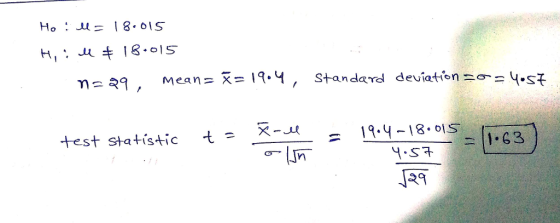 H₀ : μ = 18.015
H₁ : μ ≠ 18.015
n = 29, Mean = x̄ = 19.4, Standard deviation = σ = 4.57
test statistic t = x̄-μ / σ/√n = 19.4-18.015 / 4.57/√29 = 1.63